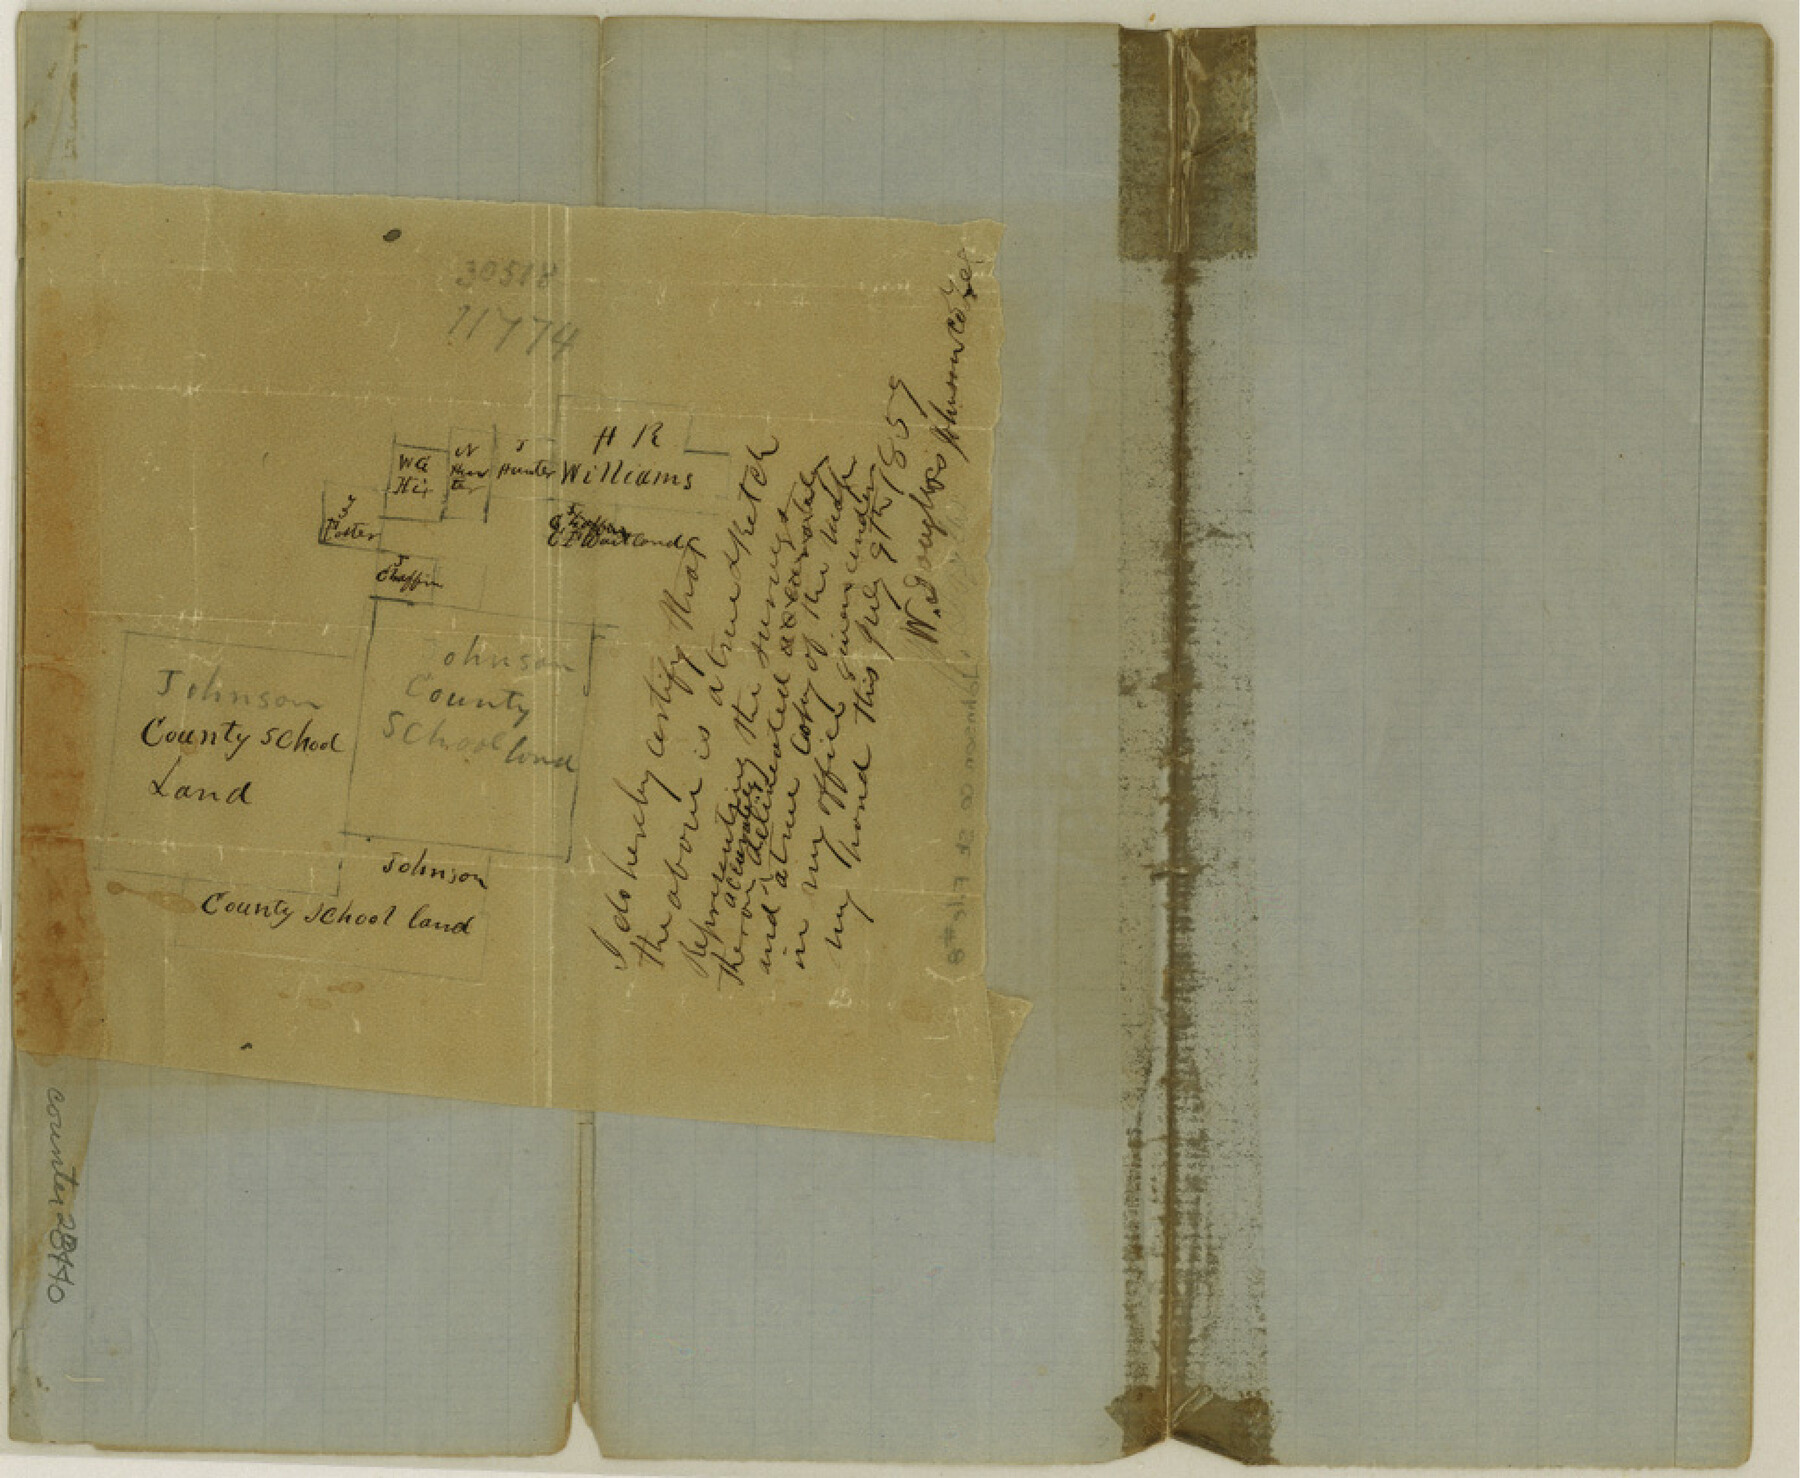 30518
11774
H R
Williams
W G
Hix
N
Hun
ter
J
Hunter
J
Foster
J
Chaffin
Johnson
County School
Land
Johnson
County
School land
Johnson
County School land
I do hereby certify that
the above is a true sketch
Representing the surveys
theron accurately
and delineated
a true Copy of the map
in my office given under
my hand this July 9th 1857
W. Douglass Johnson Co
Johnson Co Sk File # 8
counter 28440